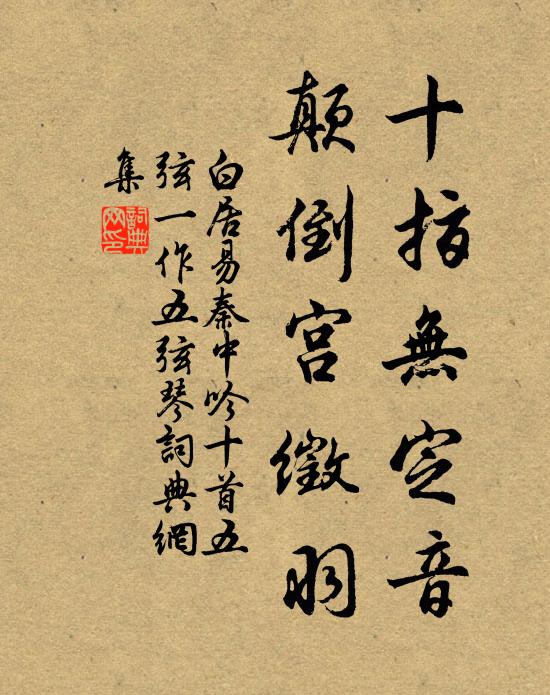 十指無定音
顛倒宮徵羽
白居易秦中吟十首五
弦一作五弦琴詞典網
集
詞典網印